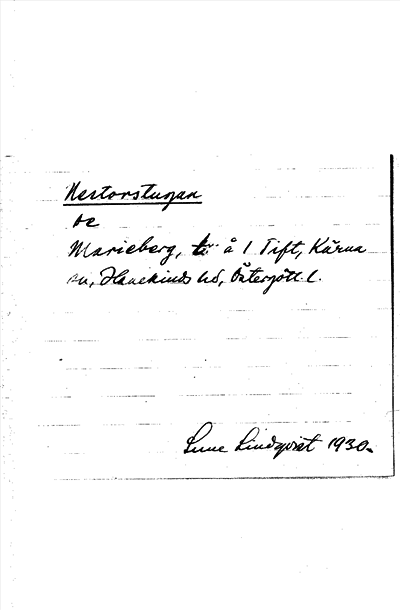 Nestorstugan
se
Marieberg, å 1 Tift, Kärna
sn, Hanekinds hd, Östergötl. l.
Sune Lindqvist 1930.